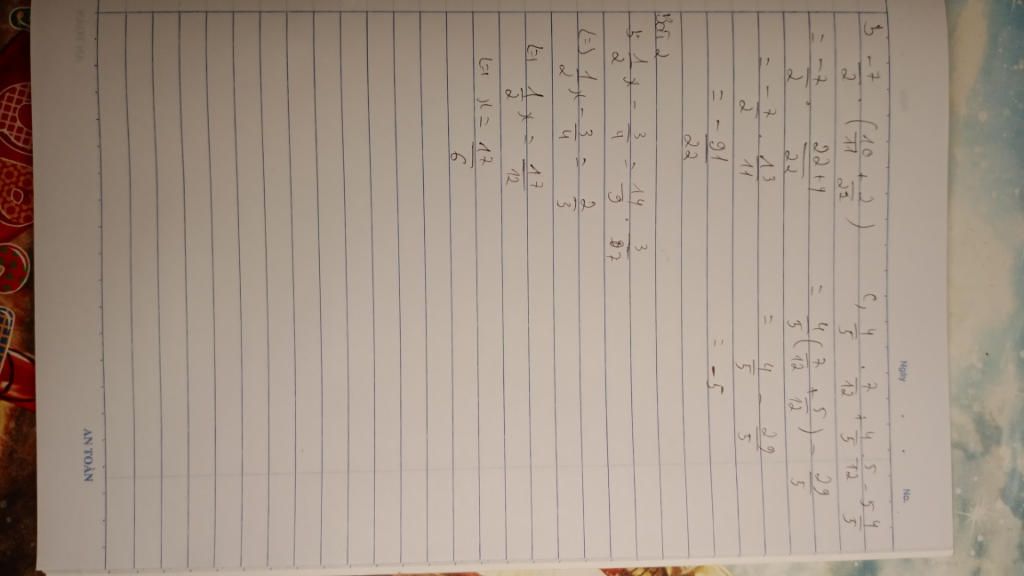 Ngày
No.
b, -7/2 . (10/11 + 2/22)
= -7/2 . 22+4/22
= -7/2 . 13/11
= -91/22
c, 4/5 . 7/12 + 4/5 . 5/12 - 5 4/5
= 4/5 (7/12 + 5/12) - 29/5
= 4/5 - 29/5
= -5
Bài 2
1/2 x - 3/4 = 14/9 . 3/7
(=) 1/2 x - 3/4 = 2/3
(=) 1/2 x = 17/12
(=) x = 17/6
AN TOÀN